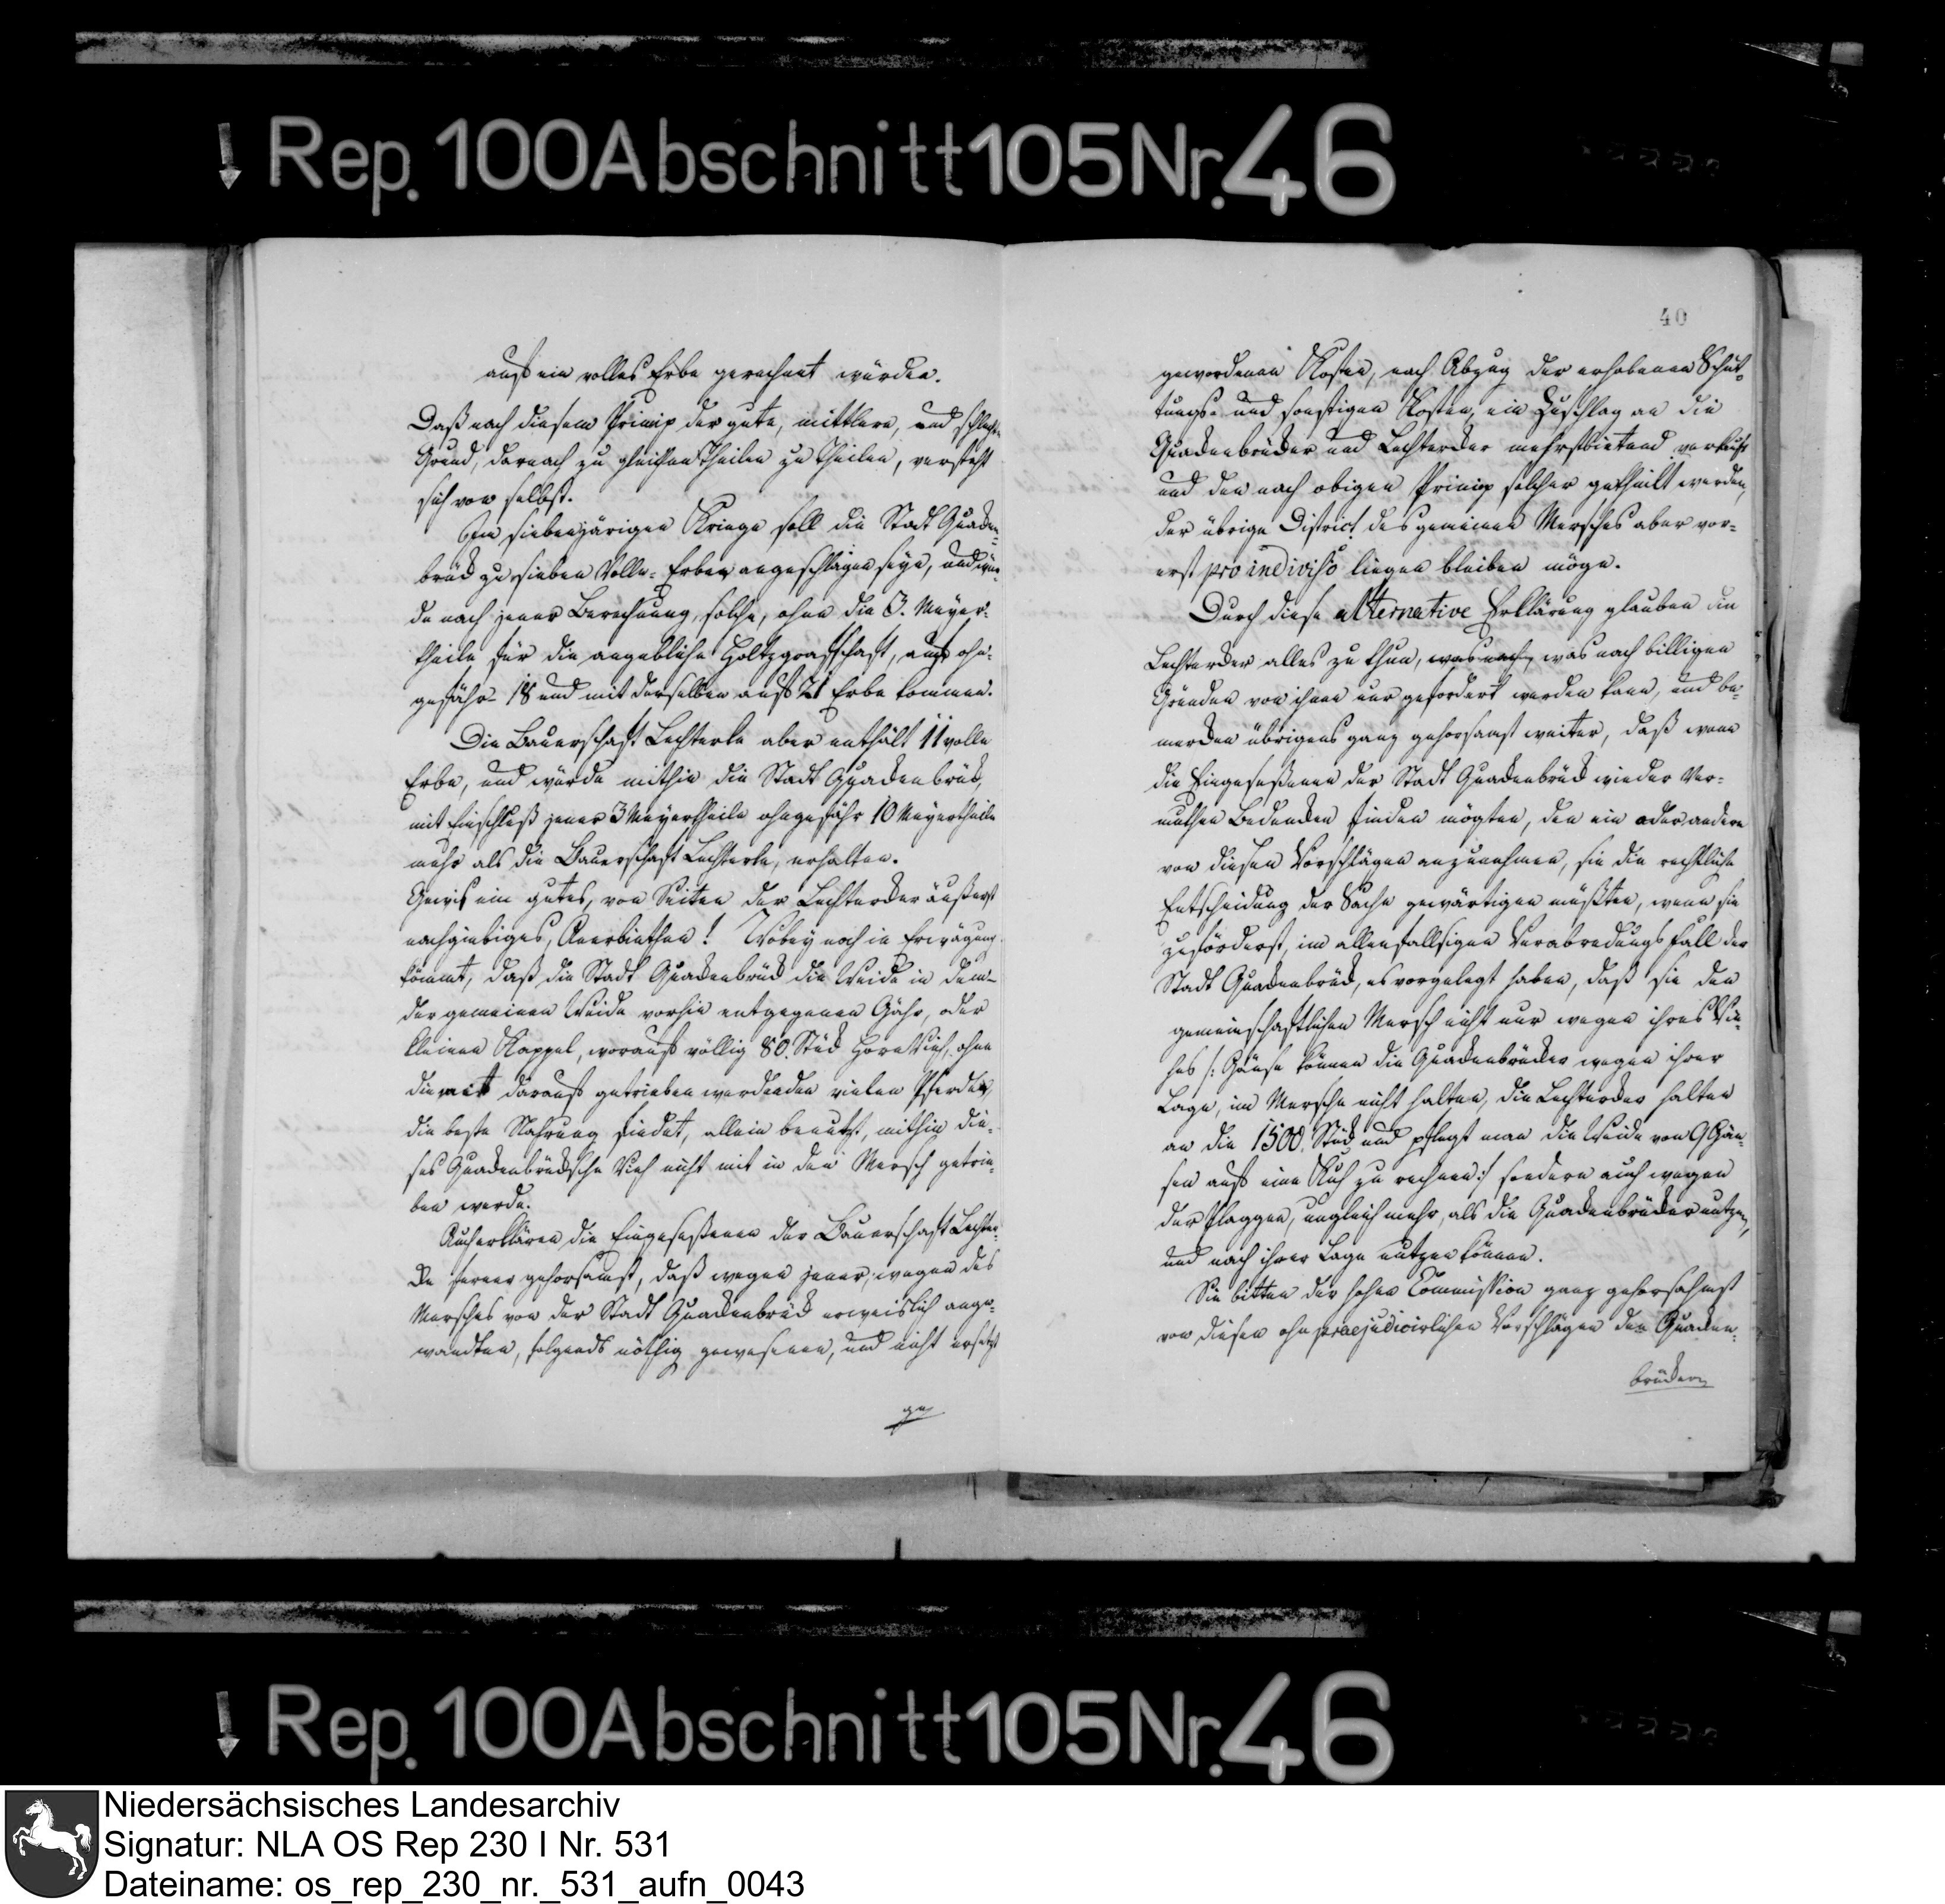 Rep. 100 A bschnitt 105 Nr. 46
auf ein volles Erbe gerechnet würden.
Daß nach diesem Princip der gute, mittlere, und schlechte
Grund, darnach zu gleichen Theilen zu theilen, versteht
sich von selbst.
Im siebenjärigen Kriege soll die Stadt Quaken-
brück zu sieben Volle-Erben angeschlagen seyn, und wür-
de nach jener Berechnung, solche, ohne die 3. Meyer-
theile für die angebliche Holtzgrafschaft, auf ohn-
gefähr 18 und mit derselben auf 21 Erbe kommen.
Die Bauerschaft Lechterke aber enthält 11 volle
Erbe, und würde mithin die Stadt Quakenbrück,
mit Einschluß jener 3 Meyertheile ohngefähr 10 Meyertheile
mehr als die Bauerschaft Lechterke, erhalten.
Gewis ein gutes, von Seiten der Lechterker äußerst
nachgiebiges, Anerbiethen! Wobey noch in Erwägung
kömmt, daß die Stadt Quakenbrück die Weide in dem-
der gemeinen Weide vorhin entgegenen Gähr, oder
kleinen Kappel, worauf völlig 80. Stück Horn Vieh, ohne
die mit darauf getrieben werdenden vielen Pferde,
die beste Nahrung findet, allein benutzt, mithin die-
ses Quakenbrücksche Vieh nicht mit in den Mersch getrie-
ben werde.
Auch erklären die Eingeseßenen der Bauerschaft Lechter-
ke ferner gehorsamst, daß wegen jener, wegen des
Mersches von der Stadt Quakenbrück erweislich ange-
wandten, folgends nöthig gewesenen, und nicht ersetzt
ge
40
gewordenen Kosten, nach Abzug der erhobenen Schüt-
tungs- und sonstigen Kosten, ein Zuschlag an die
Quakenbrücker und Lechterker mehrstbietend verkauft
und den nach obigen Princip solcher getheilt werden,
der übrige District des gemeinen Mersches aber vor-
erst pro indiviso liegen bleiben möge.
Durch diese alternative Erklärung glauben die
Lechterker alles zu thun, was nach was nach billigen
Gründen von ihnen nur gefordert werden kann, und be-
merken übrigens ganz gehorsamst weiter, daß wenn
die Eingeseßenen der Stadt Quakenbrück wieder Ver-
muthen Bedenken finden mögten, den ein oder andern
von diesen Vorschlägen anzunehmen, sie die rechtliche
Entscheidung der Sache gewärtigen müßten, wenn sie
zuförderst, im allenfallsigen Verabredungs fall der
Stadt Quakenbrück, es vorgelegt haben, daß sie den
gemeinschaftlichen Mersch nicht nur wegen ihres Vie-
hes /: Gänse können die Quakenbrücker wegen ihrer
Lage, im Mersche nicht halten, die Lechterker halten
an die 1500. Stück und pflegt man die Weide von 9 Gän-
sen auf eine Kuh zu rechnen :/ sondern auch wegen
der Plaggen, ungleich mehr, als die Quakenbrücker nutzen,
und nach ihrer Lage nutzen können.
Sie bitten der hohen Commission ganz gehorsahmst
von diesen ohnpraejudicirlichen Vorschlägen den Quaken-
brückern
Rep. 100 A bschnitt 105 Nr. 46
Niedersächsisches Landesarchiv
Signatur: NLA OS Rep 230 I Nr. 531
Dateiname: os_rep_230_nr._531_aufn_0043